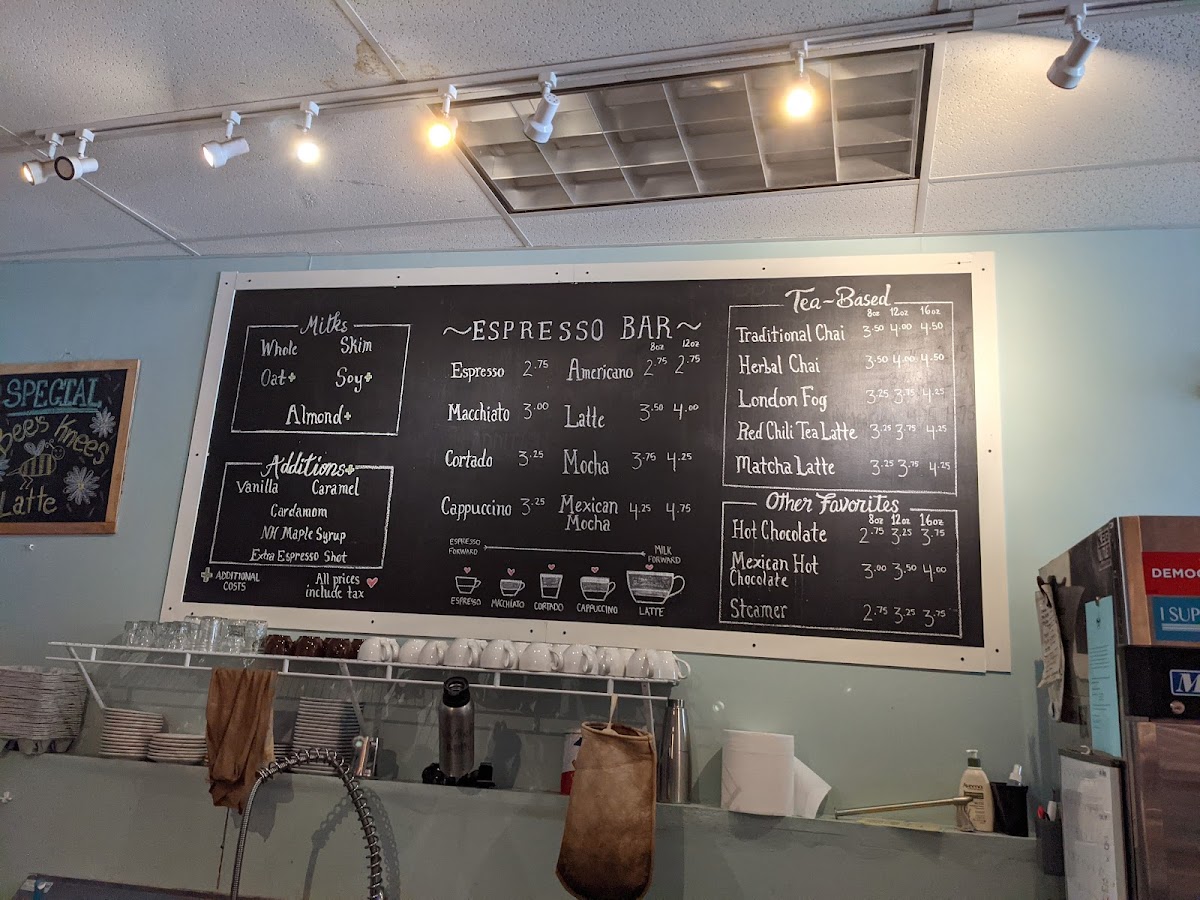 SPECIAL
Bees Knees
Latte
Milks
Whole Skim
Oat+ Soy+
Almond+
Additions+
Vanilla Caramel
Cardamom
NH Maple Syrup
Extra Espresso Shot
+ ADDITIONAL COSTS
All prices include tax
~ESPRESSO BAR~
8oz 12oz
Espresso 2.75 Americano 2.75 2.75
Macchiato 3.00 Latte 3.50 4.00
Cortado 3.25 Mocha 3.75 4.25
Cappuccino 3.25 Mexican Mocha 4.25 4.75
ESPRESSO FORWARD MILK FORWARD
ESPRESSO MACCHIATO CORTADO CAPPUCCINO LATTE
Tea-Based
8oz 12oz 16oz
Traditional Chai 3.50 4.00 4.50
Herbal Chai 3.50 4.00 4.50
London Fog 3.25 3.75 4.25
Red Chili Tea Latte 3.25 3.75 4.25
Matcha Latte 3.25 3.75 4.25
Other Favorites
8oz 12oz 16oz
Hot Chocolate 2.75 3.25 3.75
Mexican Hot
Chocolate 3.00 3.50 4.00
Steamer 2.75 3.25 3.75
DEMOC
I SUP
Aveeno